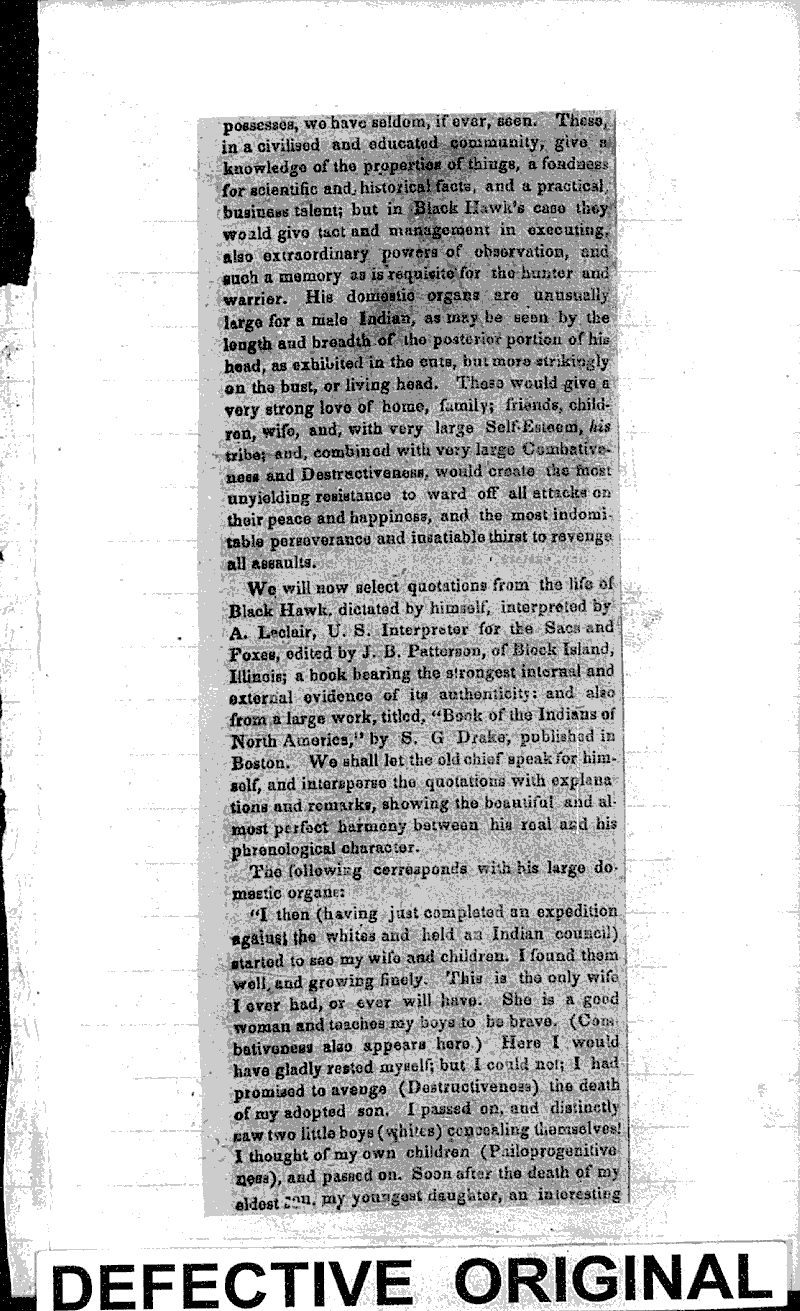 possesses, we have seldom, if ever, seen. These,
in a civilised and educated community, give a
knowledge of the properties of things, a fondness
for scientific and historical facts, and a practical,
business talent; but in Black Hawk's case they
would give tact and management in executing,
also extraordinary powers of observation, and
such a memory as is requisite for the hunter and
warrier. His domestic organs are unusually
large for a male Indian, as may be seen by the
length and breadth of the posterior portion of his
head, as exhibited in the cuts, but more strikingly
on the bust, or living head. These would give a
very strong love of home, family; friends, child-
ren, wife, and, with very large Self-Esteem, his
tribe; and, combined with very large Combative-
ness and Destructiveness, would create the most
unyielding resistance to ward off all attacks on
their peace and happiness, and the most indomi-
table perseverance and insatiable thirst to revenge
all assaults.
We will now select quotations from the life of
Black Hawk, dictated by himself, interpreted by
A. Leclair, U. S. Interpreter for the Sacs and
Foxes, edited by J. B. Patterson, of Block Island,
Illinois; a book bearing the strongest internal and
external evidence of its authenticity: and also
from a large work, titled, "Book of the Indians of
North America," by S. G Drake, published in
Boston. We shall let the old chief speak for him-
self, and intersperse the quotations with explana-
tions and remarks, showing the beautiful and al-
most perfect harmony between his real and his
phrenological character.
The following corresponds with his large do-
mestic organs:
"I then (having just completed an expedition
against the whites and held an Indian council)
started to see my wife and children. I found them
well, and growing finely. This is the only wife
I ever had, or ever will have. She is a good
woman and teaches my boys to be brave. (Com-
bativeness also appears here.) Here I would
have gladly rested myself; but I could not; I had
promised to avenge (Destructiveness) the death
of my adopted son. I passed on, and distinctly
saw two little boys (whites) concealing themselves!
I thought of my own children (Philoprogenitive
ness), and passed on. Soon after the death of my
eldest son, my youngest daughter, an interesting
DEFECTIVE ORIGINAL